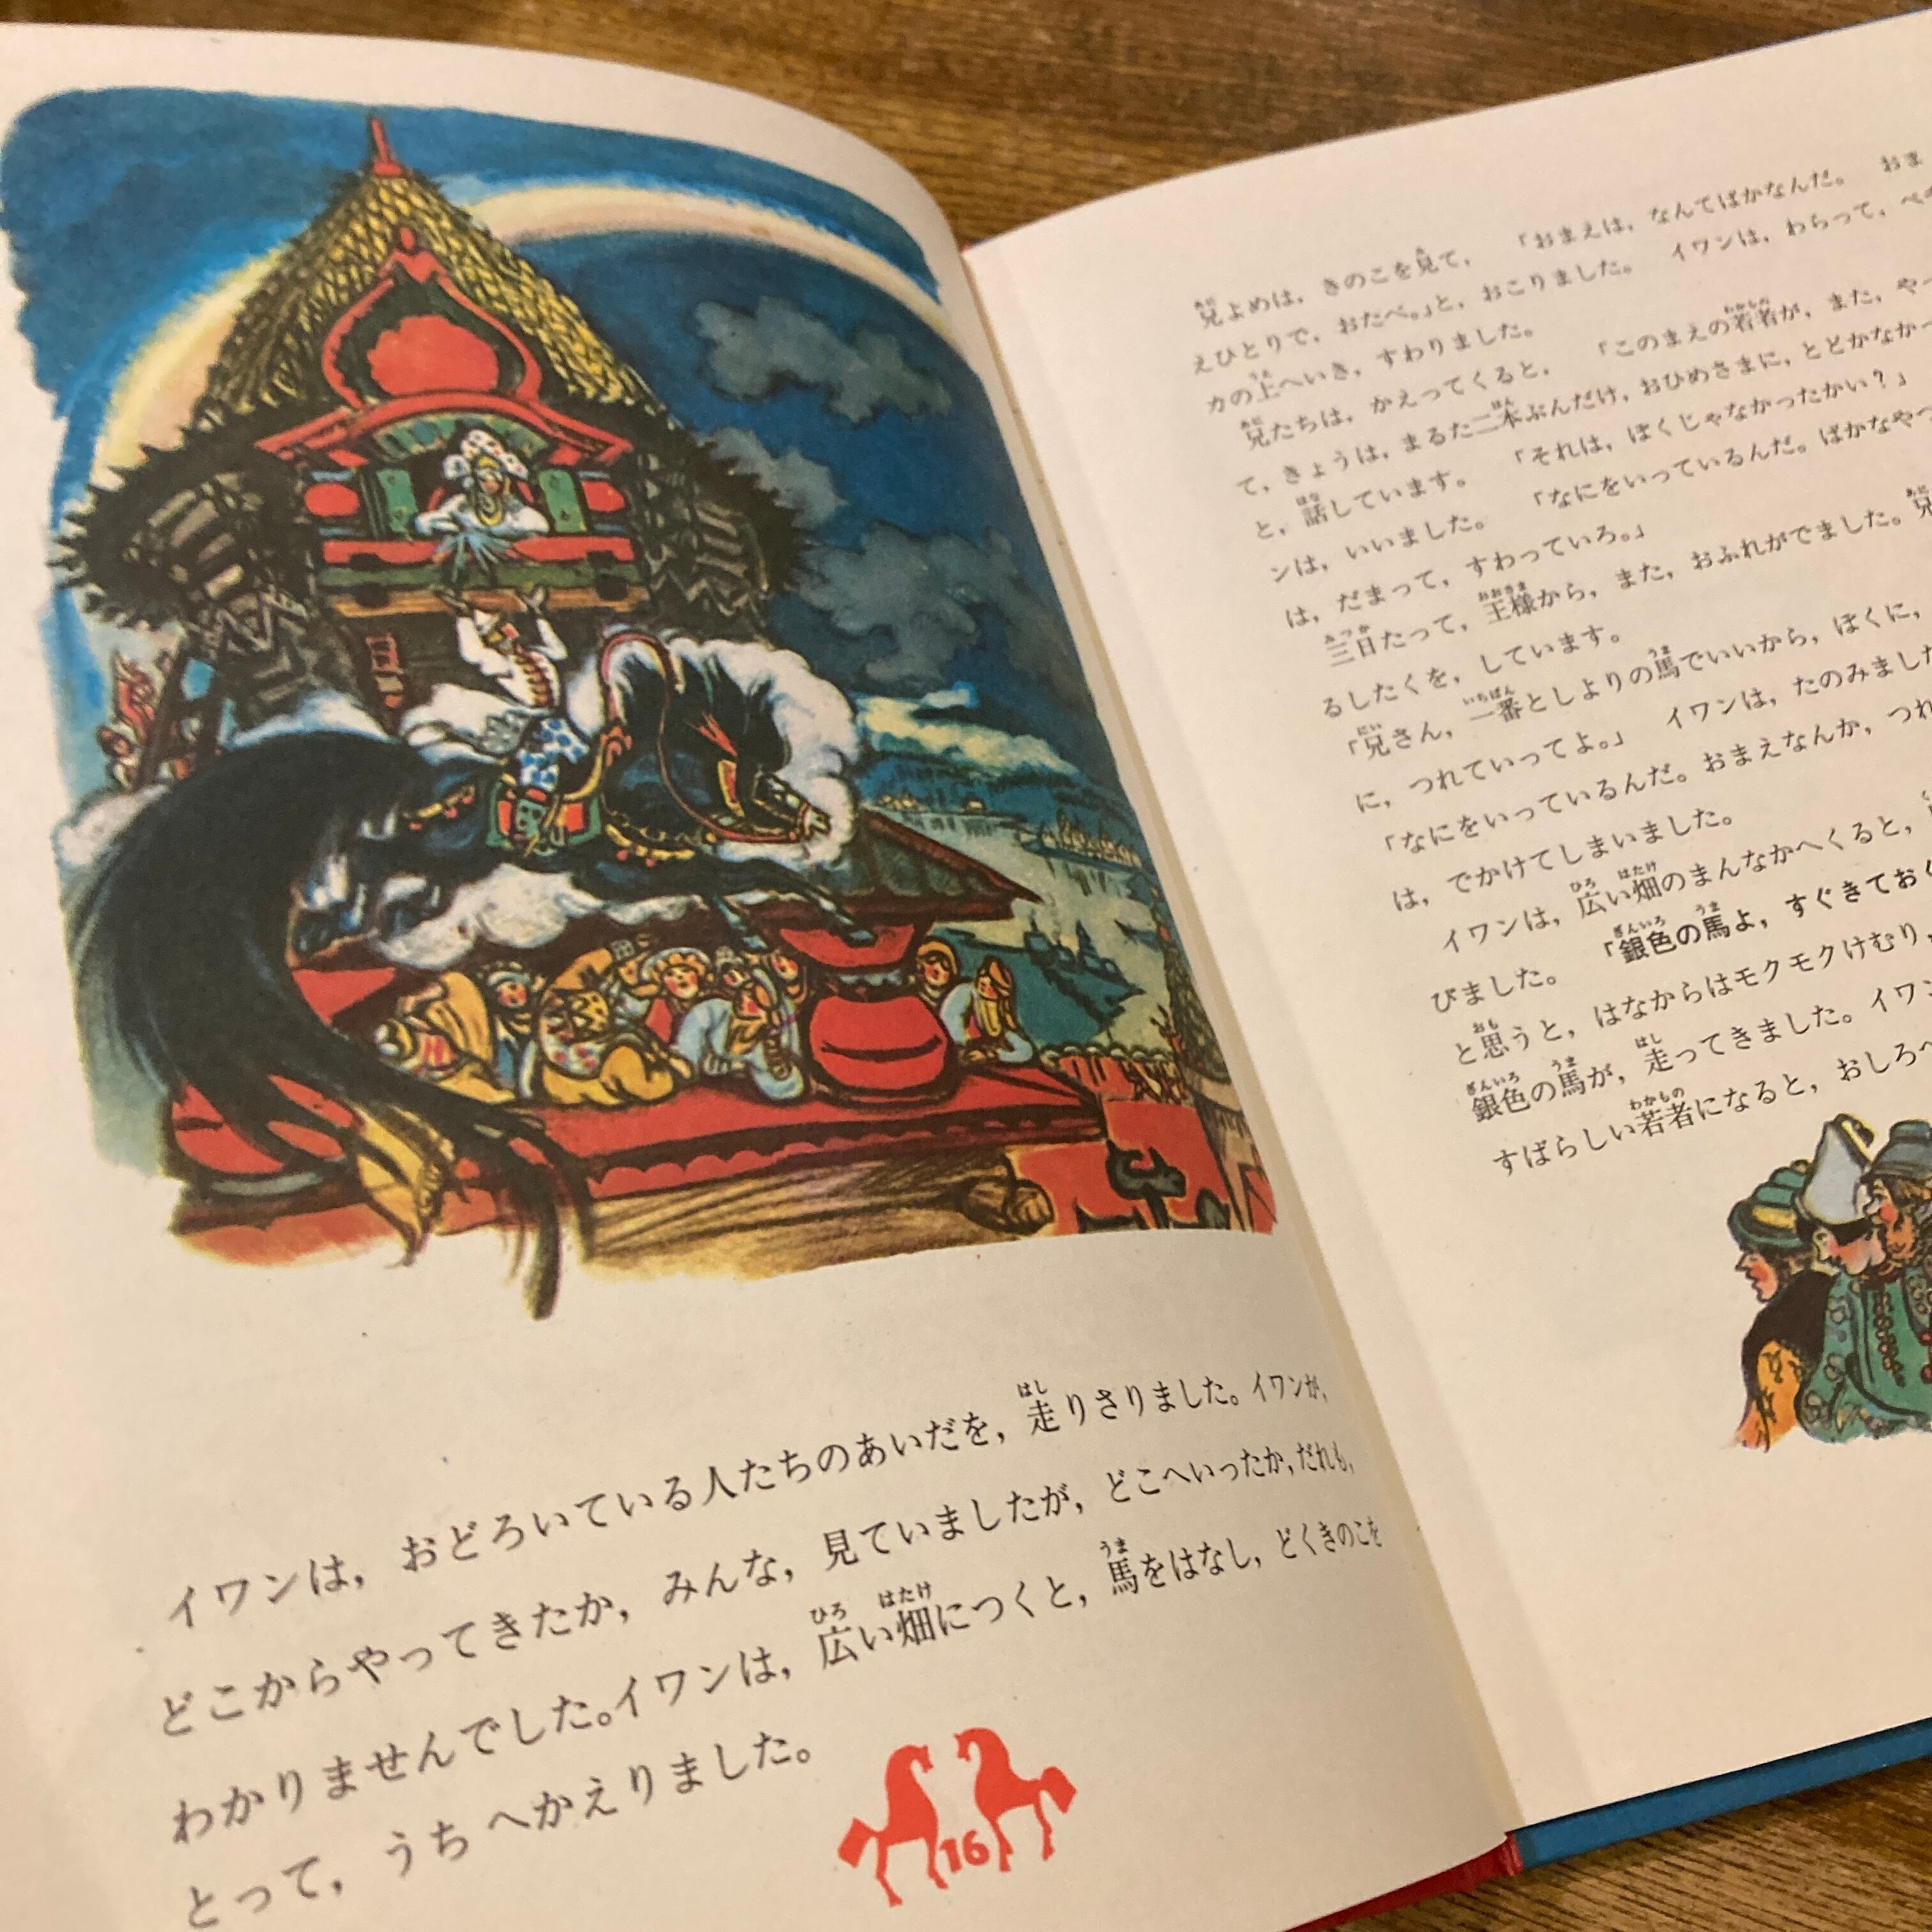 イワンは，おどろいている人たちのあいだを，走りさりました。イワンが，
どこからやってきたか，みんな，見ていましたが，どこへいったか，だれも，
わかりませんでした。イワンは，広い畑につくと，馬をはなし，どくきのこを
とって，うちへかえりました。
16
兄よめは，きのこを見て，「おまえは，なんてばかなんだ。おま
えひとりで，おたべ。」と，おこりました。イワンは，わらって，ペ
カの上へいき，すわりました。
兄たちは，かえってくると，「このまえの若者が，また，やっ
て，きょうは，まるた二本ぶんだけ，おひめさまに，とどかなかっ
と，話しています。「それは，ぼくじゃなかったかい？」
ンは，いいました。「なにをいっているんだ。ばかなやつ
は，だまって，すわっていろ。」
三日たって，王様から，また，おふれがでました。兄
るしたくを，しています。
「兄さん，一番としよりの馬でいいから，ぼくに，
に，つれていってよ。」イワンは，たのみました
「なにをいっているんだ。おまえなんか，つれ
は，でかけてしまいました。
イワンは，広い畑のまんなかへくると，
びました。「銀色の馬よ，すぐきておく
と思うと，はなからはモクモクけむり，
銀色の馬が，走ってきました。イワン
すばらしい若者になると，おしろへ